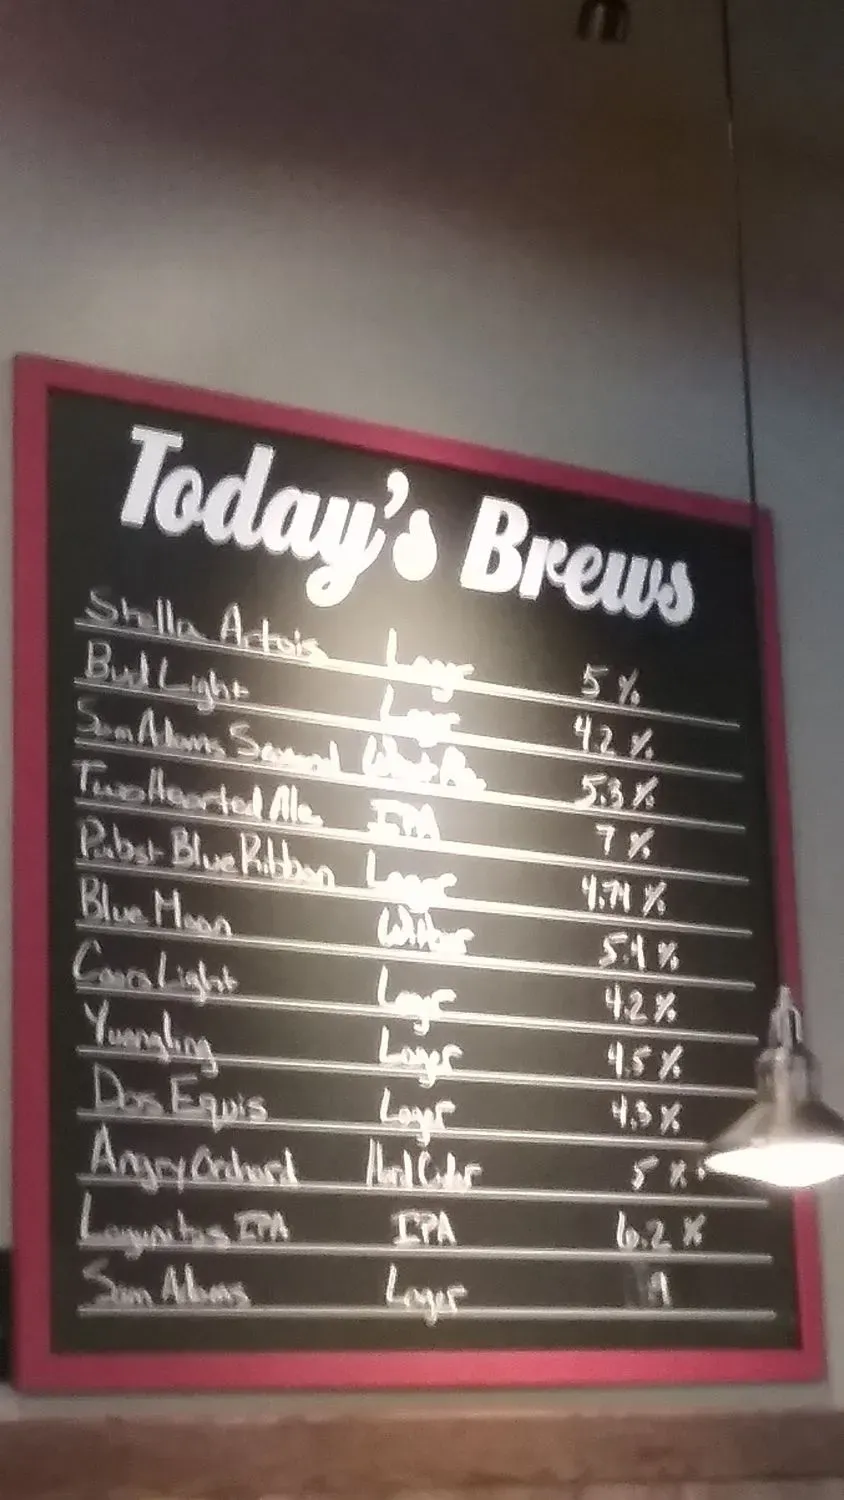 Today's Brews
Stella Artois Lager 5 %
Bud Light Lager 4.2 %
Sam Adams Seasonal 5.3 %
Two Hearted Ale IPA 7 %
Pabst Blue Ribbon Lager 4.74 %
Blue Moon 5.4 %
Coors Light Lager 4.2 %
Yuengling Lager 4.5 %
Dos Equis Lager 4.3 %
Angry Orchard Hard Cider 5 %
Lagunitas IPA IPA 6.2 %
Sam Adams Lager